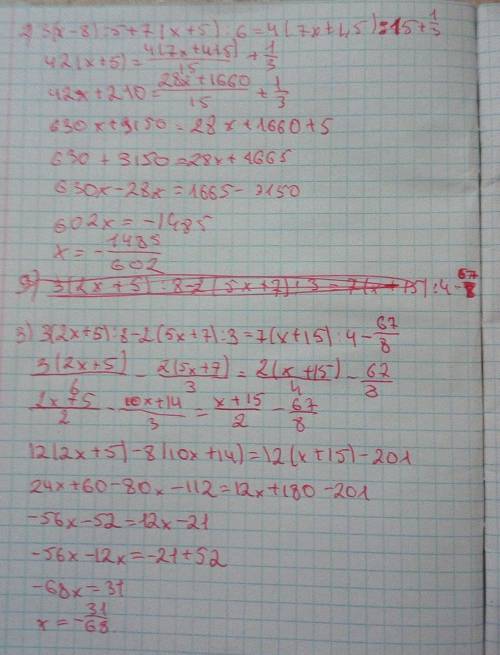 2) 3(x-8):5+7(x+5):6=4(7x+415):15+1/3
42(x+5)=4(7x+415)/15+1/3
42x+210=28x+1660/15+1/3
630x+3150=28x+1660+5
630+3150=28x+1665
630x-28x=1665-3150
602x=-1485
x=-1485/602
3) 3(2x+5):8-2(5x+7):3=7(x+15):4-67/8
3) 3(2x+5):8-2(5x+7):3=7(x+15):4-67/8
3(2x+5)/6-2(5x+7)/3=2(x+15)/4-67/8
2x+5/2-10x+14/3=x+15/2-67/8
12(2x+5)-8(10x+14)=12(x+15)-201
24x+60-80x-112=12x+180-201
-56x-52=12x-21
-56x-12x=-21+52
-68x=31
x=-31/68